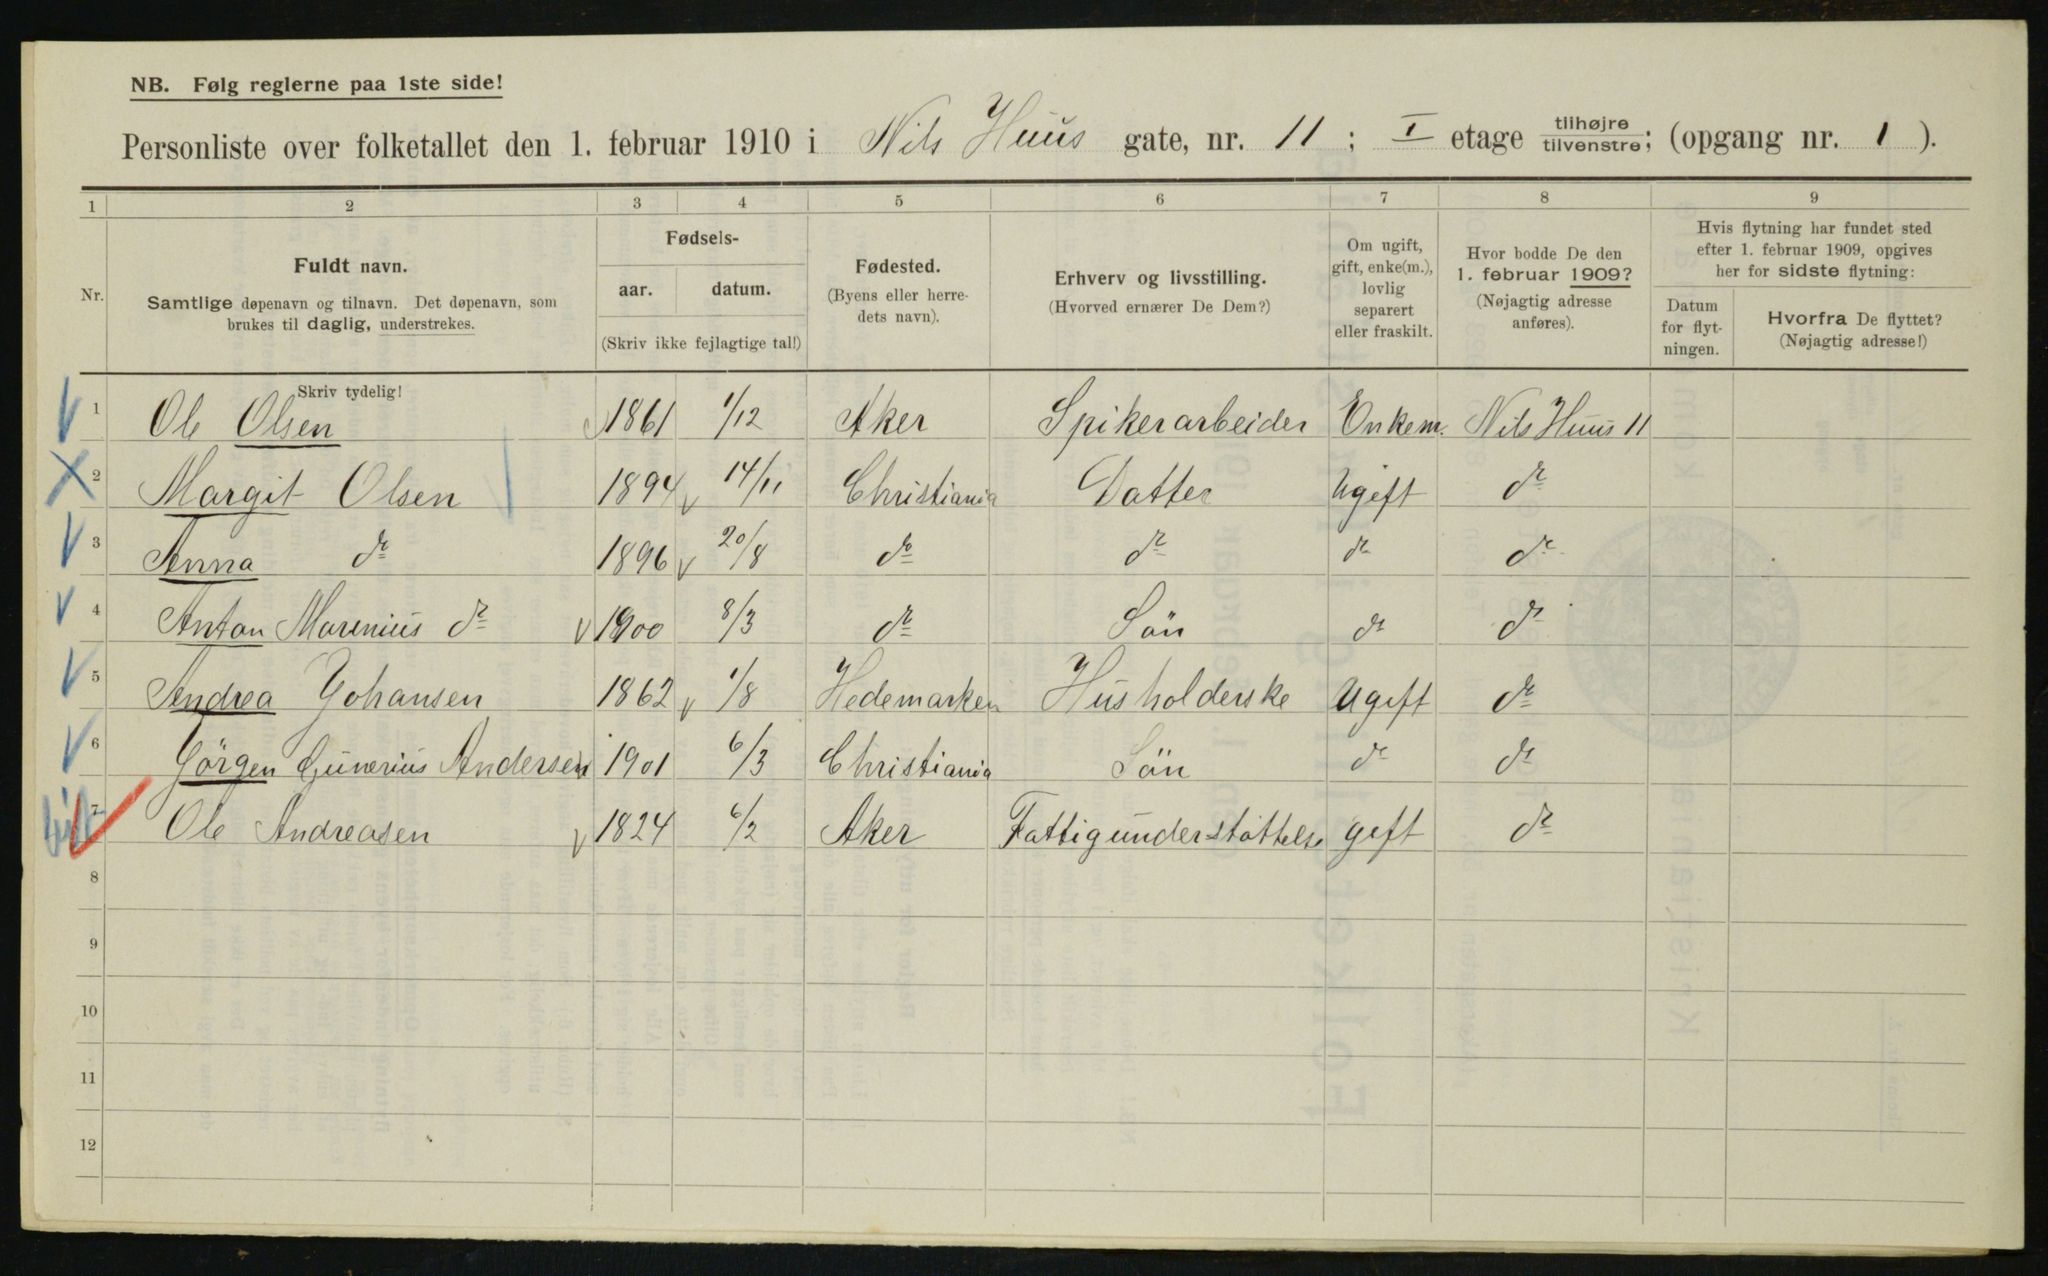 NB. Følg reglerne paa 1ste side!
Personliste over folketallet den 1. februar 1910 i Nils Huus gate, nr. 11; I etage tilhøjre/tilvenstre; (opgang nr. 1).
1 2 3 4 5 6 7 8 9
Nr.
Fuldt navn.
Samtlige døpenavn og tilnavn. Det døpenavn, som
brukes til daglig, understrekes.
Fødsels-
aar. datum.
(Skriv ikke fejlagtige tal!)
Fødested.
(Byens eller herre-
dets navn).
Erhverv og livsstilling.
(Hvorved ernærer De Dem?)
Om ugift,
gift, enke(m.),
lovlig
separert
eller fraskilt.
Hvor bodde De den
1. februar 1909?
(Nøjagtig adresse
anføres).
Hvis flytning har fundet sted
efter 1. februar 1909, opgives
her for sidste flytning:
Datum
for flyt-
ningen.
Hvorfra De flyttet?
(Nøjagtig adresse!)
Skriv tydelig!
1 Ole Olsen 1861 1/12 Aker Spikerarbeider Enkem. Nils Huus 11
2 Margit Olsen 1894 14/11 Christiania Datter Ugift do
3 Anna do 1896 20/8 do do do do
4 Anton Marinius do 1900 8/3 do Sön do do
5 Andrea Johansen 1862 1/8 Hedemarken Husholderske Ugift do
6 Jörgen Gunerius Andersen 1901 6/3 Christiania Sön do do
7 Ole Andreasen 1824 6/2 Aker Fattigunderstöttelse gift do
8
9
10
11
12